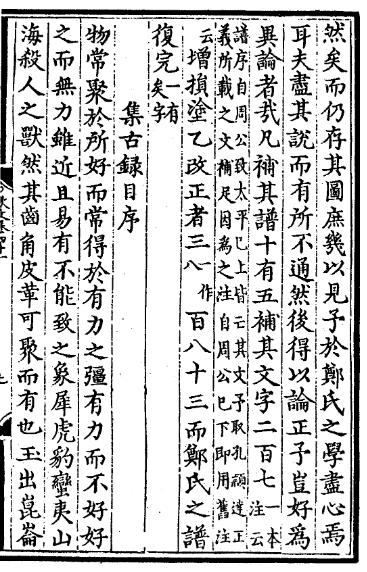 然矣而仍存其圖庶幾以見予於鄭氏之學盡心焉
耳夫盡其說而有所不通然後得以論正予豈好為
異論者哉凡補其譜十有五補其文字二百七一本注云
譜序自周公致太平已上皆亡其文予取孔穎達正
義所載之文補足因為之注自周公已下即用舊注
云增損塗乙改正者三八一作百八十三而鄭氏之譜
復完一有矣字
集古録目序
物常聚於所好而常得於有力之彊有力而不好好
之而無力雖近且易有不能致之象犀虎豹蠻夷山
海殺人之獸然其齒角皮革可聚而有也玉出崑崙